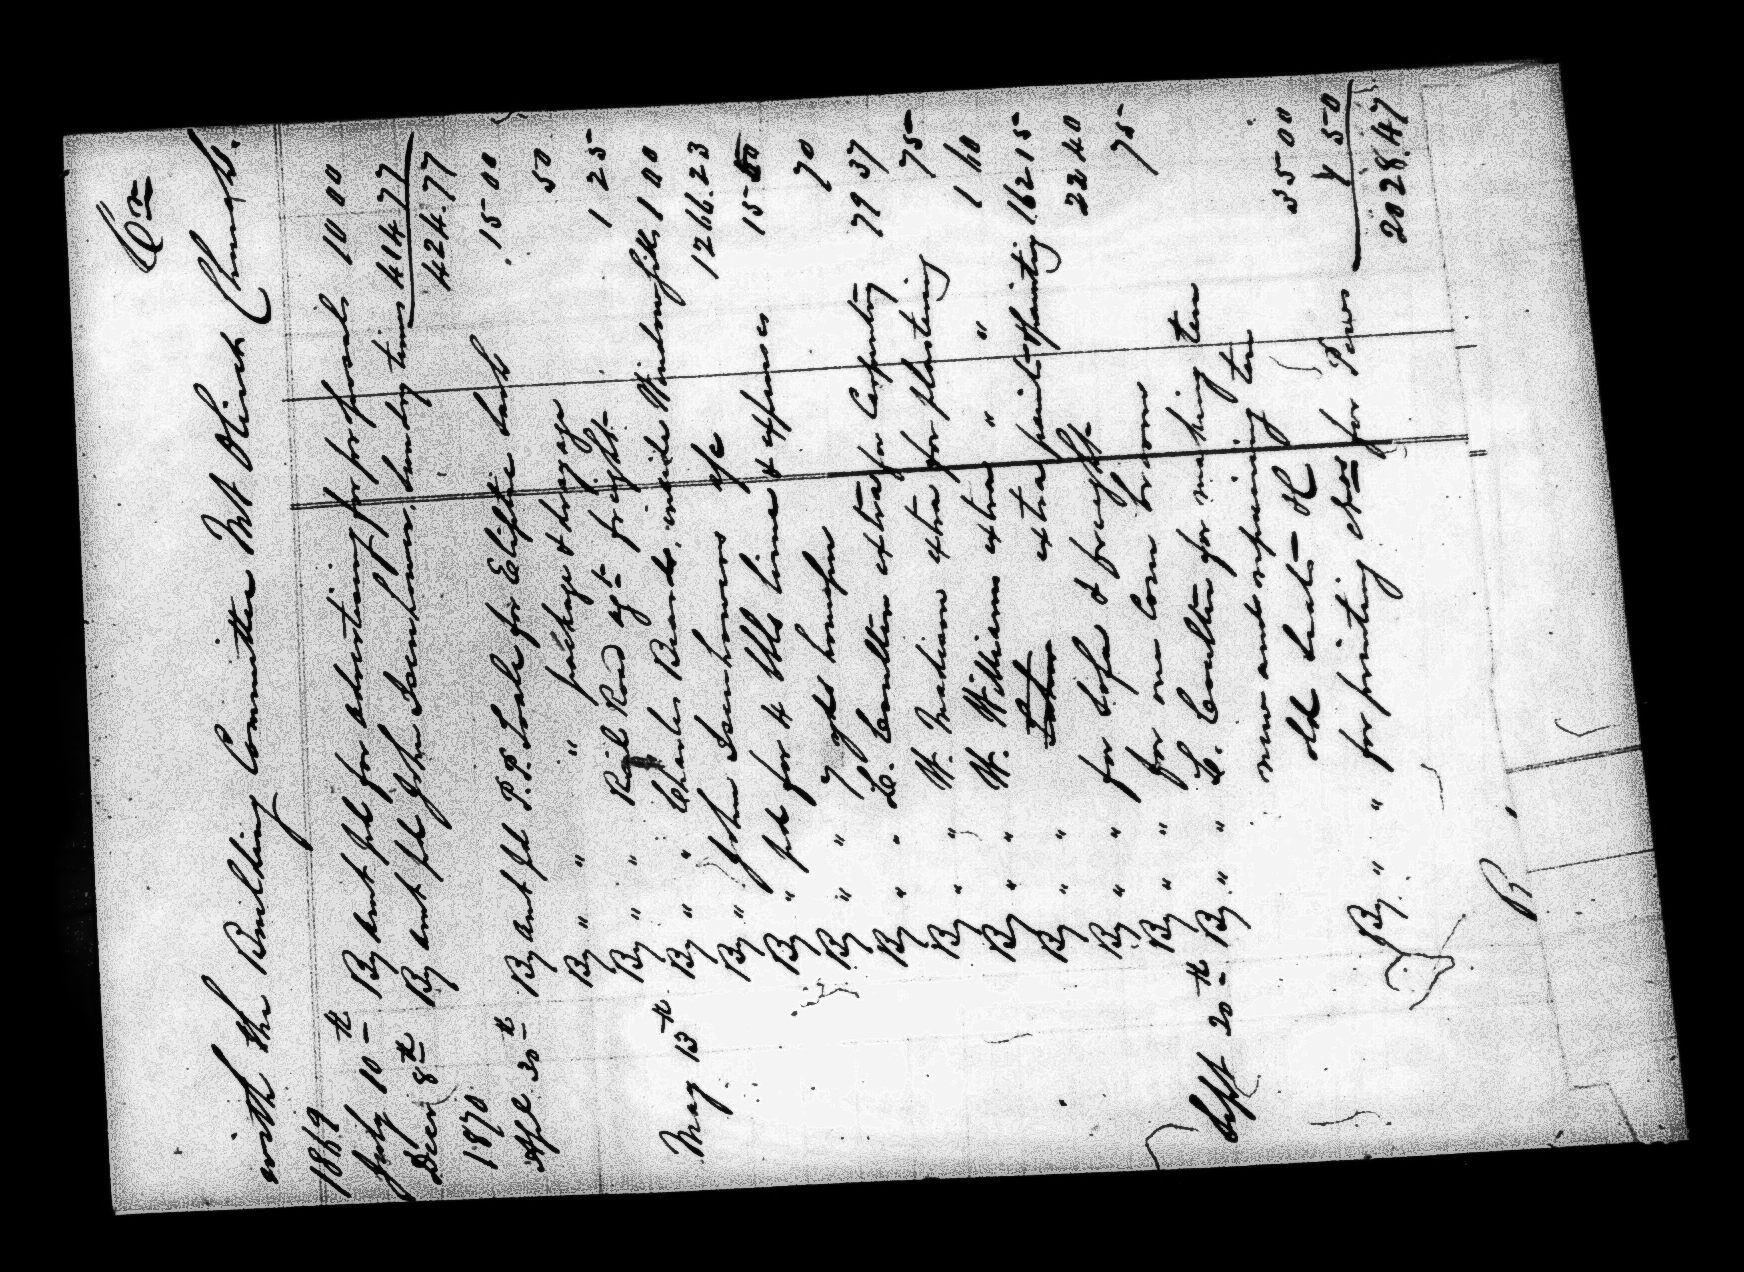 Cr
with the Building Committee Mt Olivet Church.
1869
July 10th By amt pd for advertising for proposals 10 00
Decr 8th By amt pd John Isenhower. Sundry times 414.77
424.77
1870
Apl. 30th By amt pd P.P. Toale for Eliptic Sash 15 00
By " " " package & drayage 50
By " " Rail Road agt freight 1 25
May 13th By " " Charles Brands. inside Window 1 00
By " John Isenhower a/c 1266.23
By " pd for 4 bbls lime & expenses 15
By " " 7 yds 70
By " " C. Coulter extra for Carpentry 79 37
By " " W. Madison extra for plastering 75
By " " W. Williams extra " " 1 60
By " " extra paint & painting 162 15
By " " for Sofa & freight 22 40
By " " for one Corn broom 75
Sept 20th By " " C. Coulter for making ten
new and repairing ten
old seats 35 00
By " " for printing Nos for Pews 4 50
2028.47